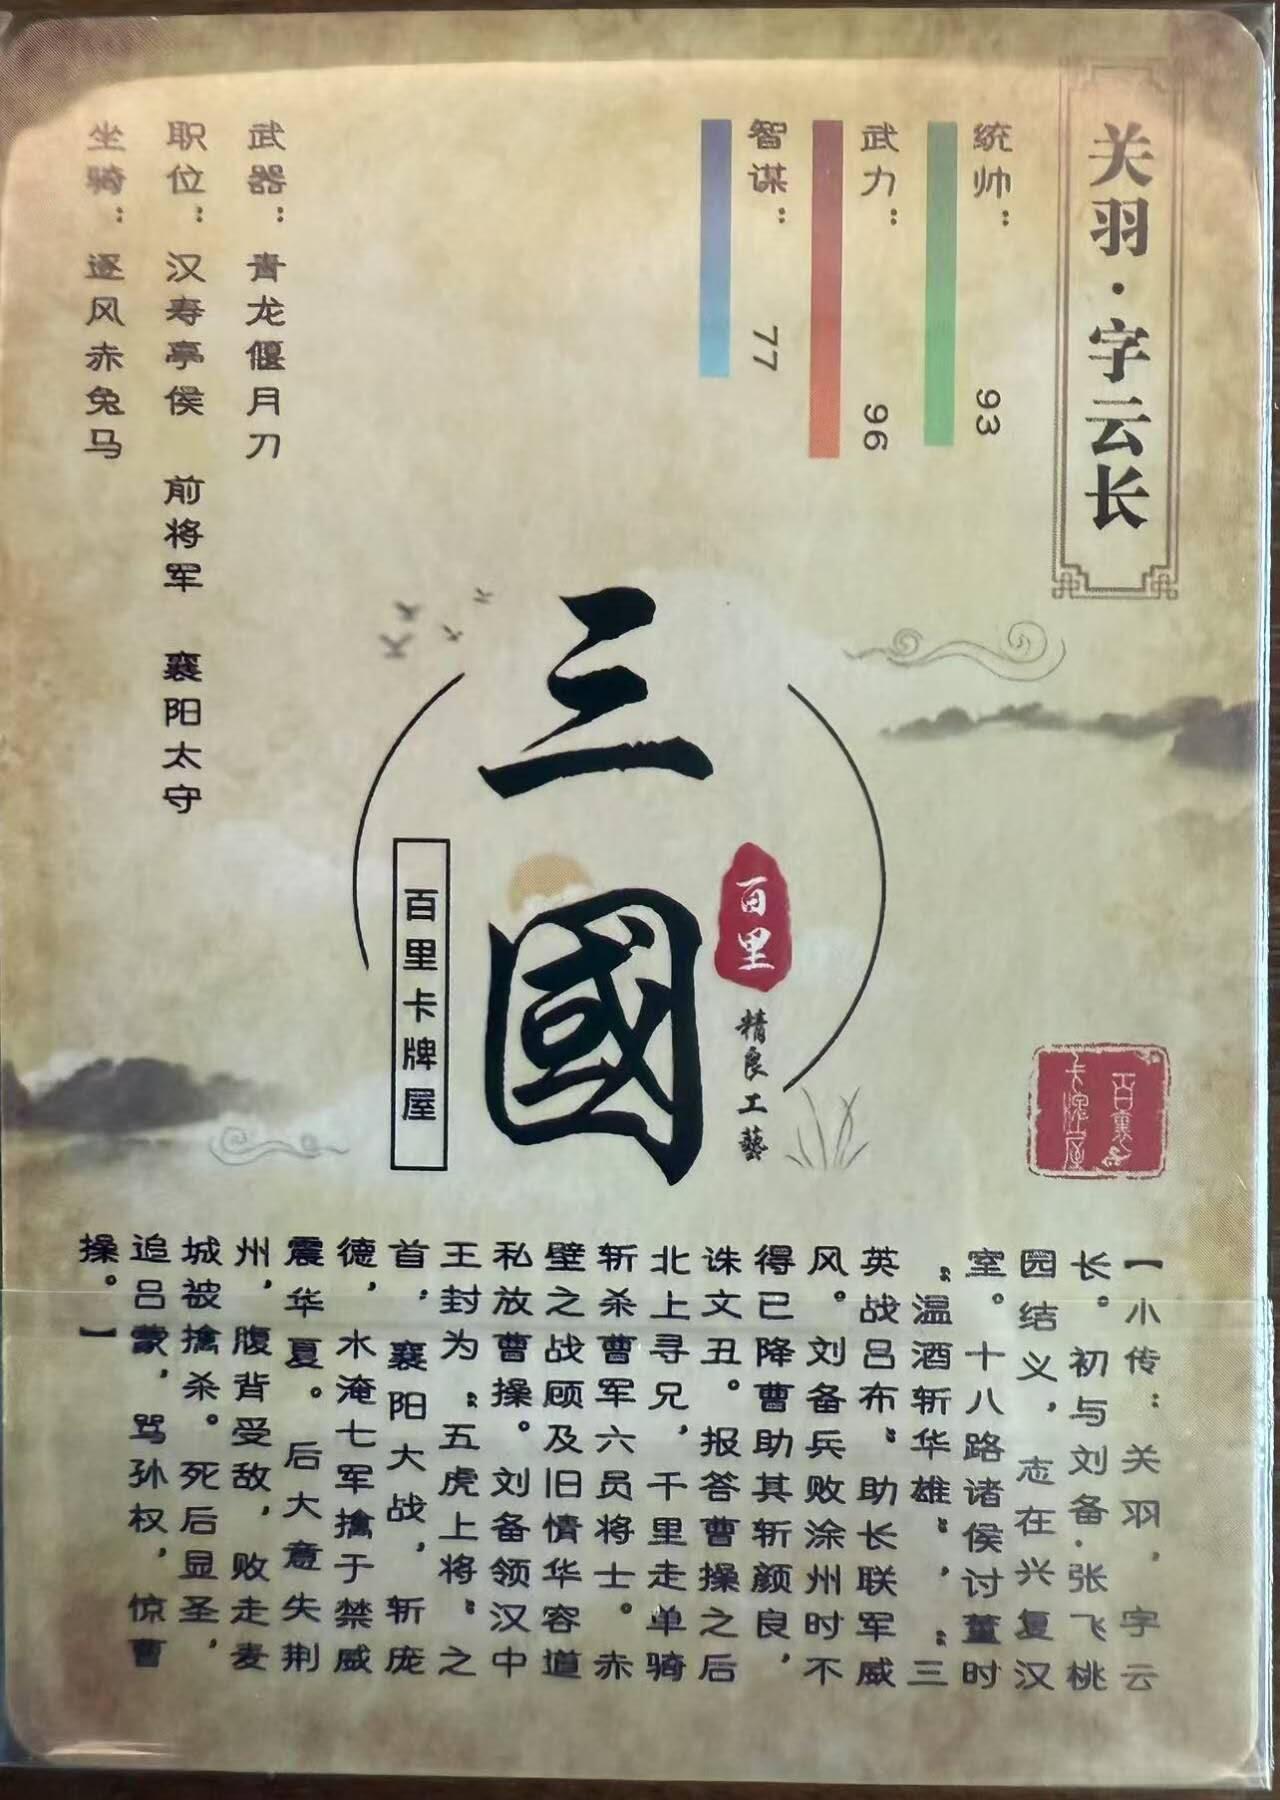 关羽·字云长
统帅：93
武力：96
智谋：77
武器：青龙偃月刀
职位：汉寿亭侯 前将军 襄阳太守
坐骑：逐风赤兔马
三國
百里
精良工藝
百里卡牌屋
【小传：关羽，字云
长。初与刘备·张飞桃
园结义，志在兴复汉
室。十八路诸侯讨董时
“温酒斩华雄”，“三
英战吕布”助长联军威
风。刘备兵败涂州时不
得已降曹助其斩颜良，
诛文丑。报答曹操之后
北上寻兄，千里走单骑
斩杀曹军六员将士。赤
壁之战顾及旧情华容道
私放曹操。刘备领汉中
王封为“五虎上将”之
首，襄阳大战，斩庞
德，水淹七军擒于禁威
震华夏。后大意失荆
州，腹背受敌，败走麦
城被擒杀。死后显圣，
追吕蒙，骂孙权，惊曹
操。】